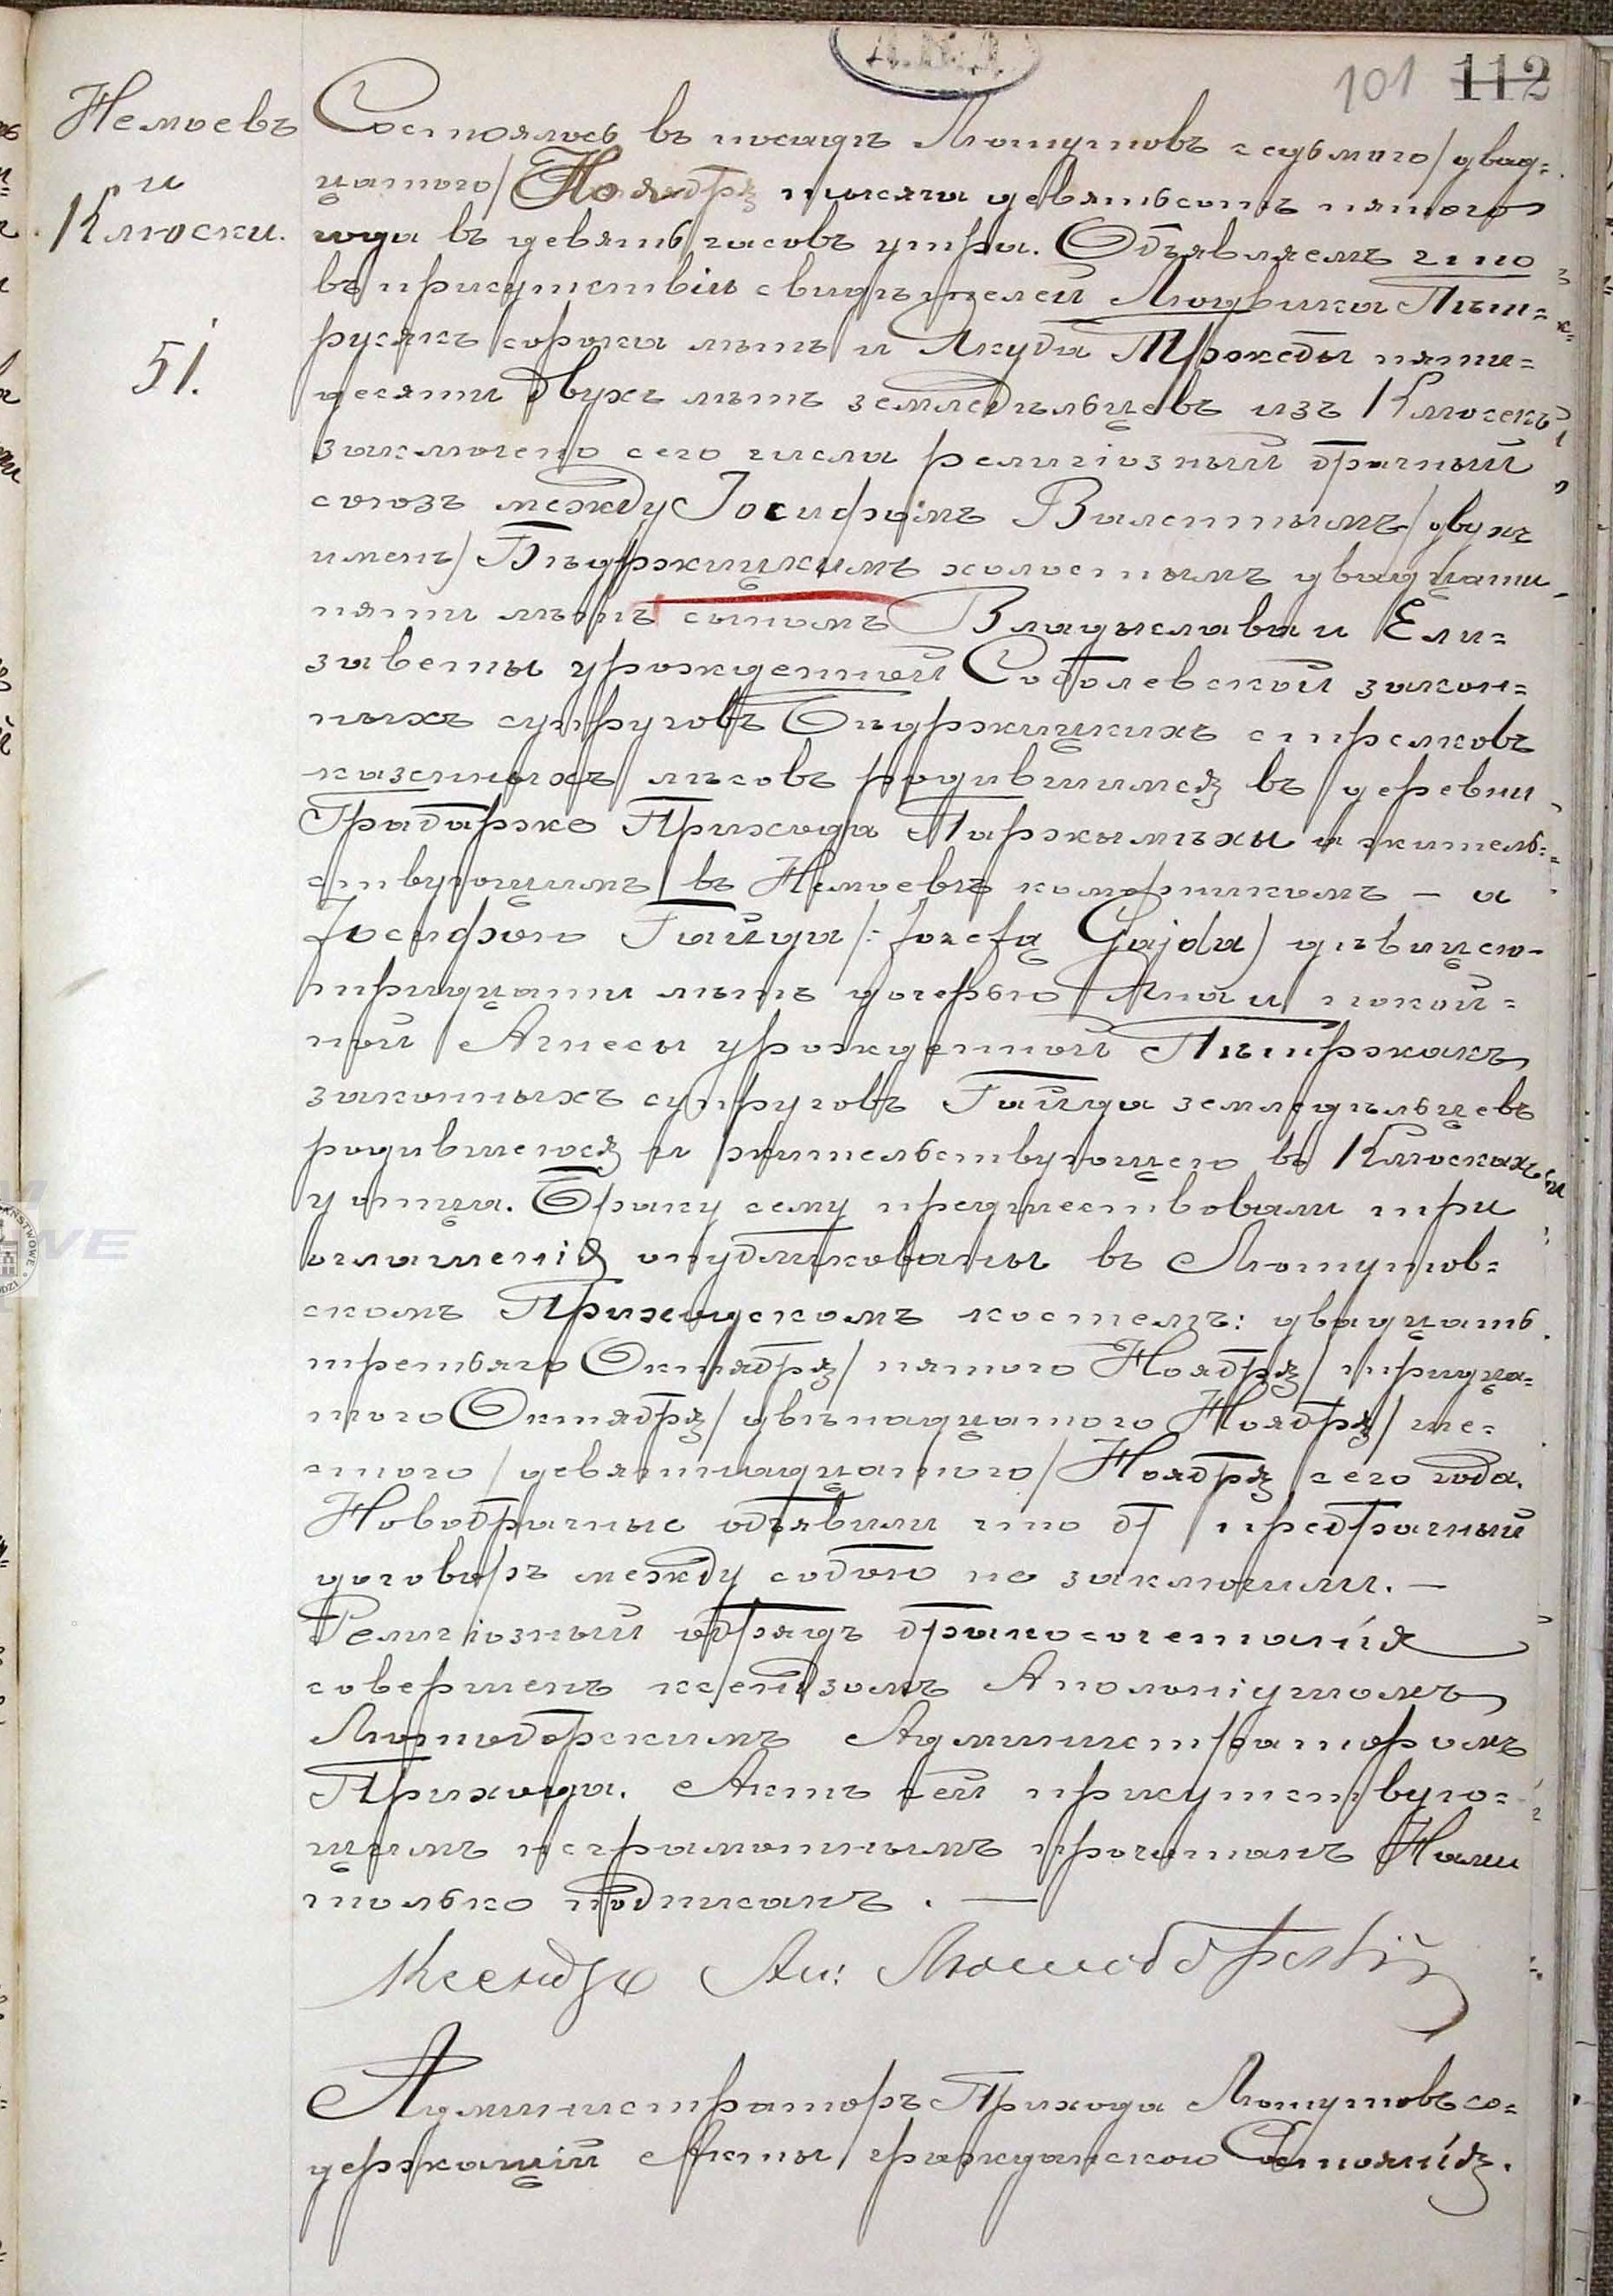 101 112
Немоевъ
и
Клюски.
51.
Состоялось въ посадѣ Лютутовѣ седьмого /двад=
цатого/ Ноября тысяча девятьсотъ пятого
года въ девять часовъ утра. Объявляемъ что
въ присутствіи свидѣтелей Людвика Пѣт=
русякъ сорока лѣтъ и Якуба пяти=
десяти двухъ лѣтъ земледѣльцевъ изъ Клюсекъ
заключено сего числа религіозный брачный
союзъ между Іосифомъ Валентымъ /двухъ
именъ/ Бѣдржицкимъ холостымъ двадцати
пяти лѣтъ сыномъ Владыслава и Ели=
заветы урожденной Соболевской закон=
ныхъ супруговъ Бѣдржицкихъ стрелковъ
казенныхъ лѣсовъ родившимся въ деревни
Грабарже Прихода и житель=
ствующимъ въ Немоевѣ коморникомъ – а
Іосифою Гайда /: Jozefą Gajda) дѣвицею
тридцати лѣтъ дочерью Яна и покой=
ной Агнесы урожденной Пѣтржакъ
законныхъ супруговъ Гайда земледѣльцевъ
родившеюся и жительствующею въ Клюскахъ
у отца. Браку сему предшествовали три
оглашенія опубликованы въ Лютутов=
скомъ Приходскомъ костелѣ: двадцать
третьяго Октября /пятого Ноября/ тридца=
того Октября /двѣнадцатого Ноября/ ше=
стого /девятнадцатого/ Ноября сего года.
Новобрачные объявили что бт предбрачный
договоръ между собою не заключили. —
Религіозный обрядъ бракосочетанія
совершенъ ксендзомъ Аполоніушомъ
Лютоборскимъ Администраторомъ
Прихода. Актъ сей присутствую=
щимъ неграмотнымъ прочитанъ Нами
только подписанъ. —
Ксендзъ Ап: Лютоборскій
Администраторъ Прихода Лютутовъ со=
держащій Акты гражданского Состоянія.